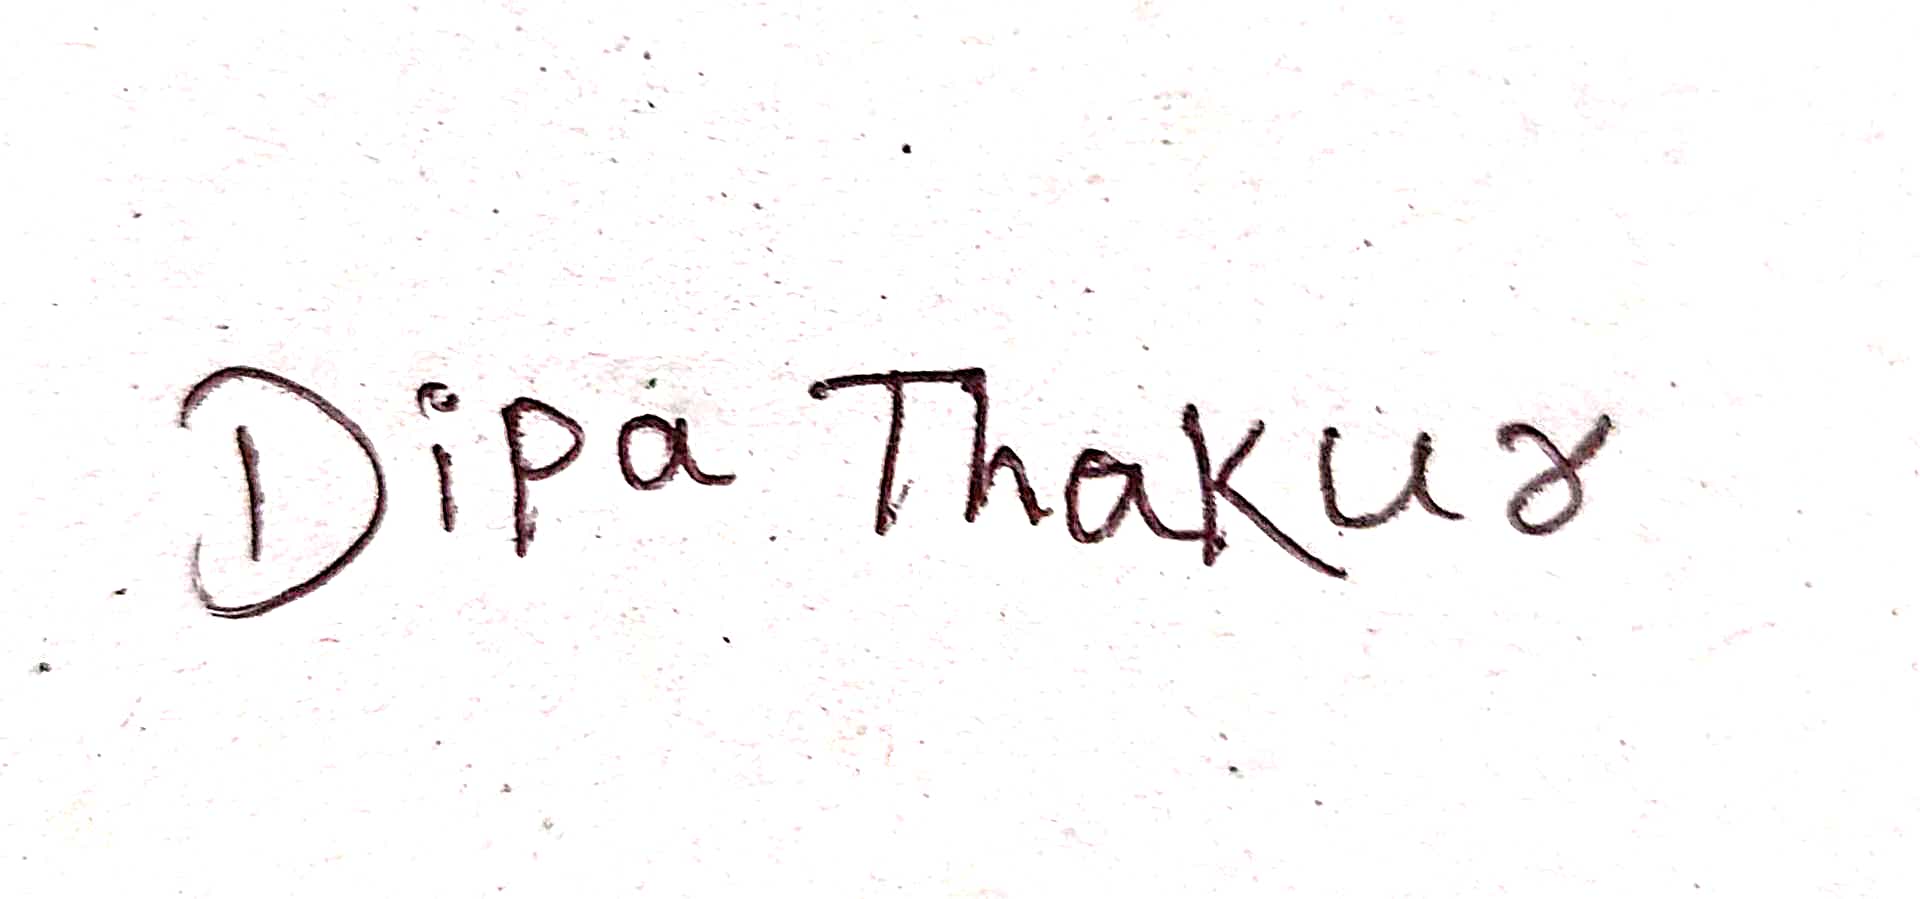 Dipa Thakur